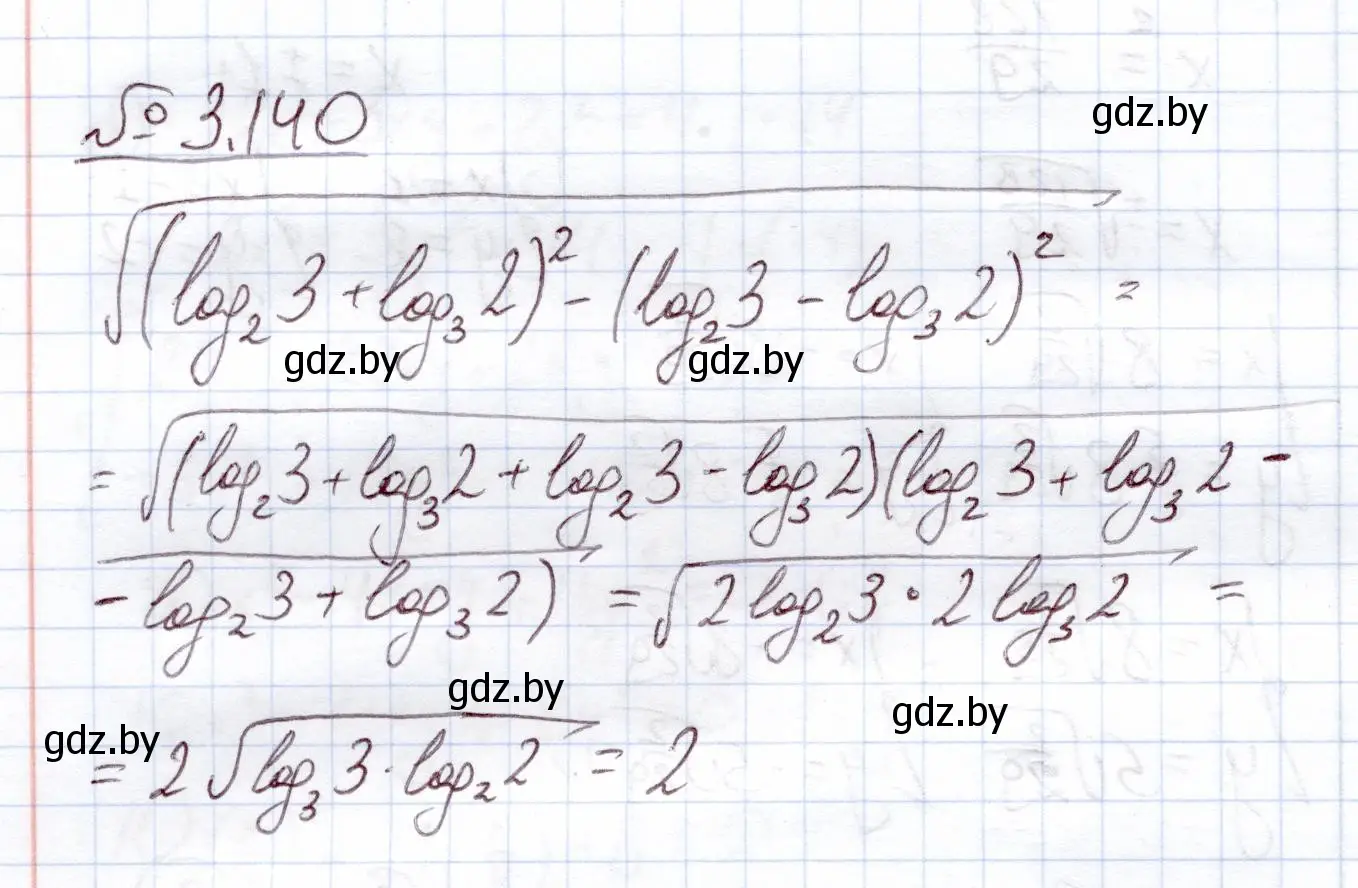 № 3.140
gdz.by
√((log₂3 + log₃2)² - (log₂3 - log₃2)²) =
gdz.by gdz.by
= √((log₂3 + log₃2 + log₂3 - log₃2)(log₂3 + log₃2 -
- log₂3 + log₃2)) = √(2 log₂3 · 2 log₃2) =
gdz.by gdz.by
gdz.by
= 2 √(log₃3 · log₂2) = 2